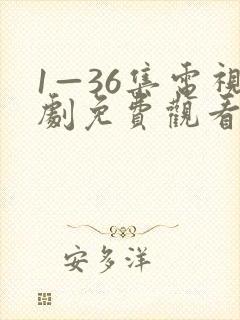 1—36集電視
劇免費觀看
安多洋